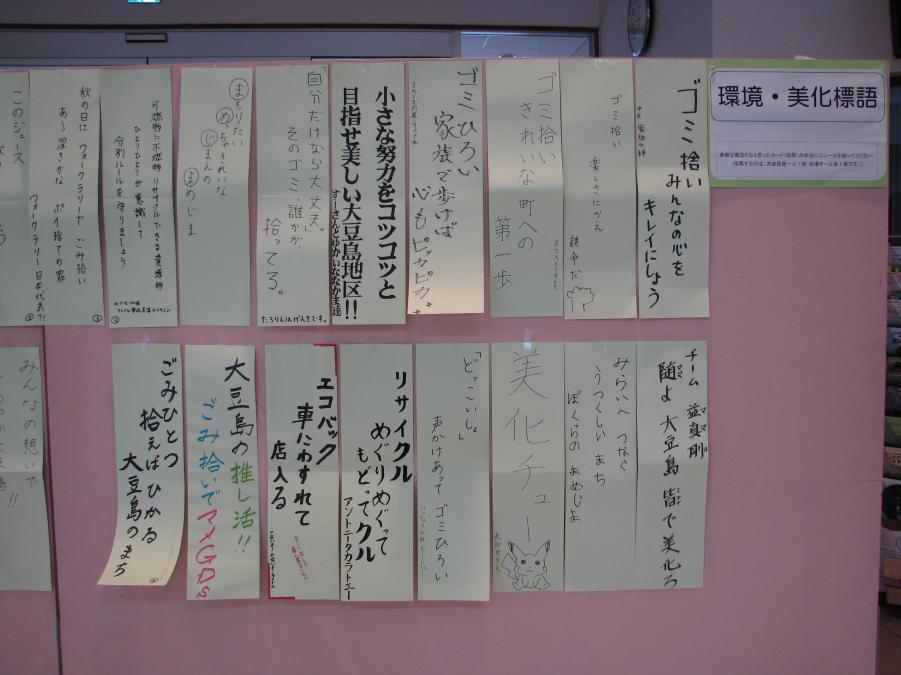 環境・美化標語
ゴミ拾い
みんなの心を
キレイにしよう
ゴミ拾い
楽しさにかえ
ゴミ拾い
きれいな町への
第一歩
ゴミひろい
家族で歩けば
心もピッカピカ
小さな努力をコツコツと
目指せ美しい大豆島地区!!
すーさんとゆかいななかま達
「自分だけなら大丈夫」
そのゴミ、誰かが
拾ってる。
たろりんはげんきです。
まもりたい
めっちゃきれいな
じまんの
まめじま
可燃物に不燃物リサイクルできる資源物
ひとりひとりが意識して
分別ルールを守りましょう
秋の日に ウォークラリーで ごみ拾い
あゝ深きかな ポイ捨ての罪
ウォークラリー日本代表?!
このジュース
チーム 益真剛
随よ 大豆島 皆で美化ろ
みらいへ つなぐ
うつくしい まち
ぼくらの まめじま
美化チュー
「どっこいしょ」
声かけあって ゴミひろい
リサイクル
めぐりめぐって
もどってクル
アントニータカラトニー
エコバック
車にわすれて
店入る
大豆島の推し活!!
ごみ拾いでマメGDs
ごみひとつ
拾えば ひかる
大豆島のまち
みんなの想いで